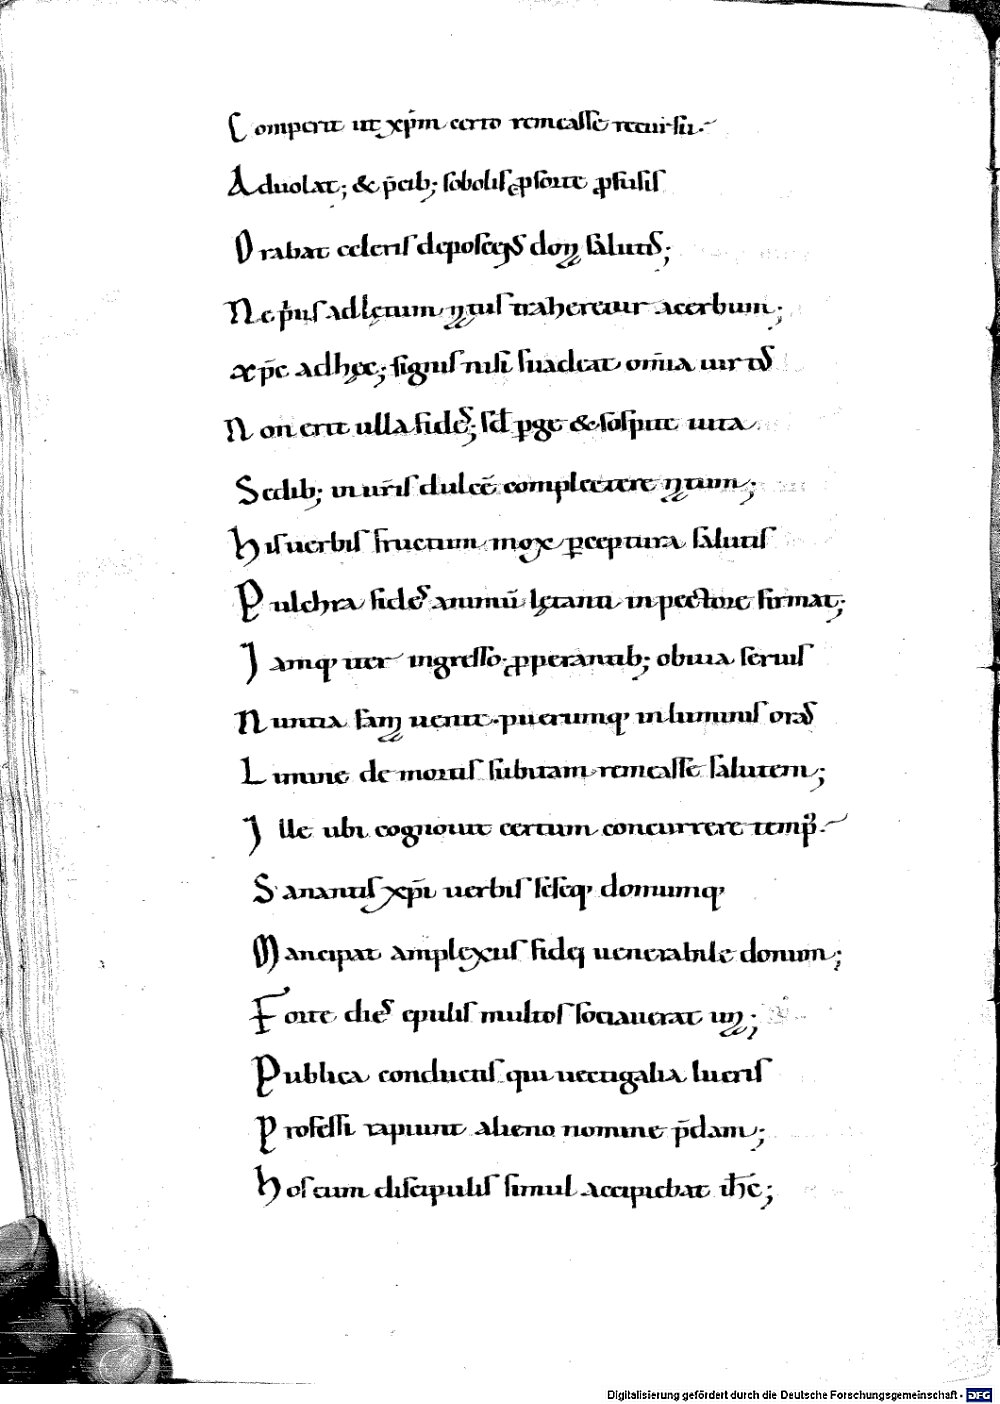 Comperit ut xp̄m certo remeasse recursu.
Aduolat; & p̄cib; sobolis ꝓ sorte ꝓfusis
Orabat celeris deposcens donũ salutis;
Ne pͥus ad lętum natus traheretur acerbum;
xp̄c ad hęc; signis nisi suadeat om̄ia uirtus
Non erit ulla fides; sed ꝑge & sospite uita
Sedib; in ur̄is dulcē complectere natum;
His uerbis fructum mox ꝑceptura salutis
Pulchra fides animū lętanti in pectore firmat;
Jamq; iter ingresso ꝓperantib; obuia seruis
Nuntia fam uenit. puerumq; in luminis oras
Limine de mortis subitam remeasse salutem;
Ille ubi cognouit certum concurrere tempꝰ.
Sanantis xp̄i uerbis seseq; domumq;
Mancipat amplexus fidei uenerabile donum;
Forte dies epulis multos sociauerat un;
Publica conductis qui uectigalia lucris
Professi rapiunt alieno nomine p̄dam;
Hos cum discipulis simul accipiebat ih̄c;
Digitalisierung gefördert durch die Deutsche Forschungsgemeinschaft - DFG